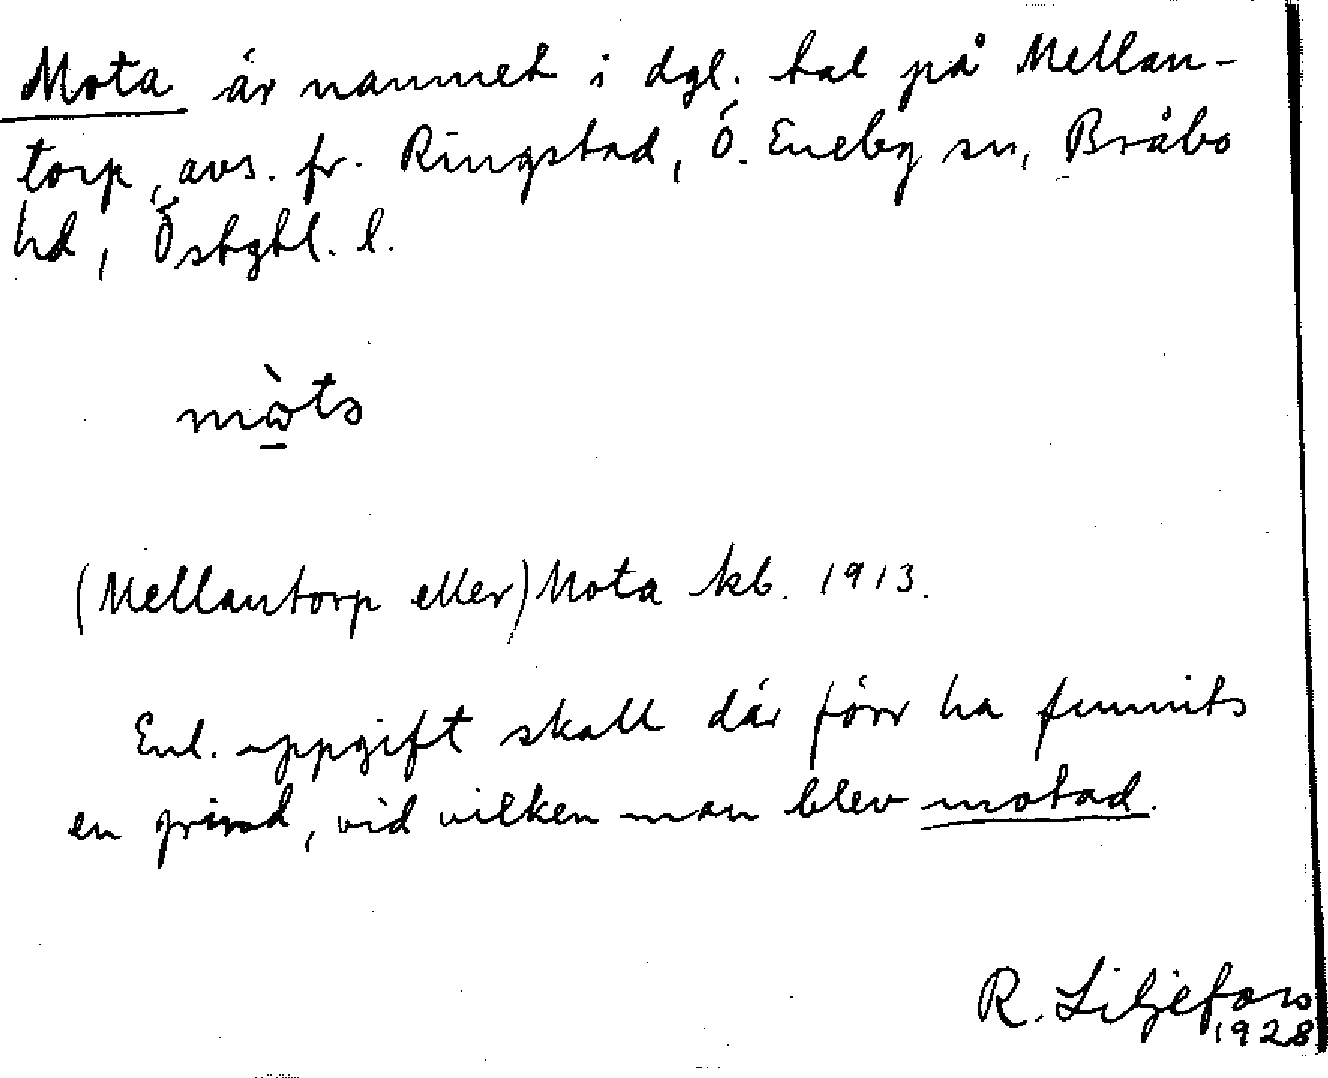 Mota är namnet i dgl. tal på Mellan-
torp, avs. fr. Ringstad, Ö. Eneby sn, Bråbo
hd, Östgtl. l.
(Mellantorp eller) Mota kb. 1913.
Enl. uppgift skall där förr ha funnits
en grind, vid vilken man blev motad.
R. Liljefors
1928